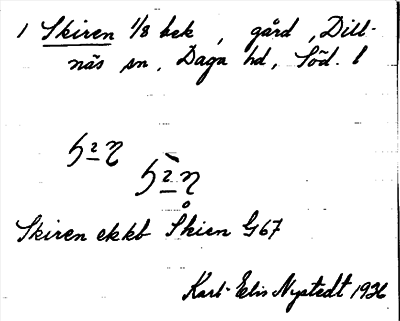 1 Skiren 1/8 bek , gård , Dill-
näs sn , Daga hd, Söd. l
Skiren ekkb Skien G67
Karl-Elis Nystedt 1936